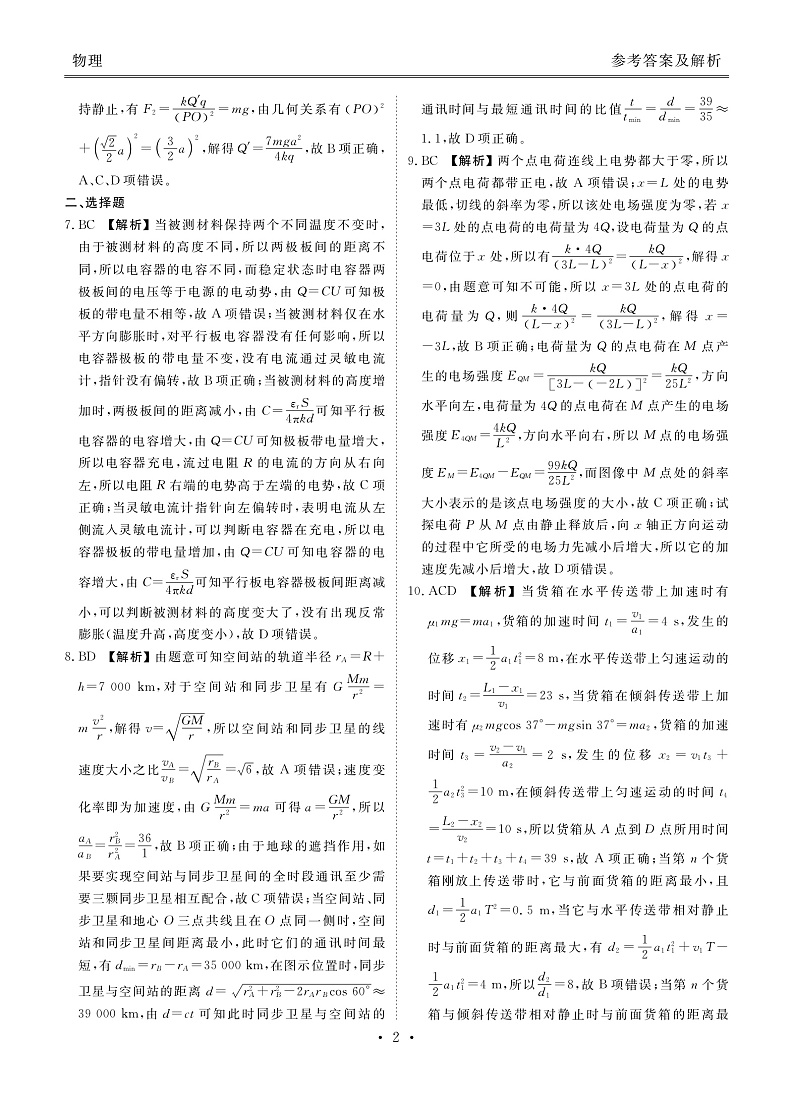 物理
参考答案及解析
持静止,有 F₂=kQ′q/(PO)²=mg,由几何关系有(PO)²
+(√2/2 a)²=(3/2 a)²,解得 Q′=7mga²/4kq,故 B 项正确,
A、C、D 项错误。
二、选择题
7. BC 【解析】当被测材料保持两个不同温度不变时,
由于被测材料的高度不同,所以两极板间的距离不
同,所以电容器的电容不同,而稳定状态时电容器两
极板间的电压等于电源的电动势,由 Q=CU 可知极
板的带电量不相等,故 A 项错误;当被测材料仅在水
平方向膨胀时,对平行板电容器没有任何影响,所以
电容器极板的带电量不变,没有电流通过灵敏电流
计,指针没有偏转,故 B 项正确;当被测材料的高度增
加时,两极板间的距离减小,由 C=εᵣS/4πkd可知平行板
电容器的电容增大,由 Q=CU 可知极板带电量增大,
所以电容器充电,流过电阻 R 的电流的方向从右向
左,所以电阻 R 右端的电势高于左端的电势,故 C 项
正确;当灵敏电流计指针向左偏转时,表明电流从左
侧流入灵敏电流计,可以判断电容器在充电,所以电
容器极板的带电量增加,由 Q=CU 可知电容器的电
容增大,由 C=εᵣS/4πkd可知平行板电容器极板间距离减
小,可以判断被测材料的高度变大了,没有出现反常
膨胀(温度升高,高度变小),故 D 项错误。
8. BD 【解析】由题意可知空间站的轨道半径 r_A=R+
h=7 000 km,对于空间站和同步卫星有 G Mm/r²=
m v²/r,解得 v=√(GM/r),所以空间站和同步卫星的线
速度大小之比v_A/v_B=√(r_B/r_A)=√6,故 A 项错误;速度变
化率即为加速度,由 G Mm/r²=ma 可得 a=GM/r²,所以
a_A/a_B=r_B²/r_A²=36/1,故 B 项正确;由于地球的遮挡作用,如
果要实现空间站与同步卫星间的全时段通讯至少需
要三颗同步卫星相互配合,故 C 项错误;当空间站、同
步卫星和地心 O 三点共线且在 O 点同一侧时,空间
站和同步卫星间距离最小,此时它们的通讯时间最
短,有 d_min=r_B-r_A=35 000 km,在图示位置时,同步
卫星与空间站的距离 d=√(r_A²+r_B²-2r_A r_B cos 60°)≈
39 000 km,由 d=ct 可知此时同步卫星与空间站的
通讯时间与最短通讯时间的比值t/t_min=d/d_min=39/35≈
1.1,故 D 项正确。
9. BC 【解析】两个点电荷连线上电势都大于零,所以
两个点电荷都带正电,故 A 项错误;x=L 处的电势
最低,切线的斜率为零,所以该处电场强度为零,若 x
=3L 处的点电荷的电荷量为 4Q,设电荷量为 Q 的点
电荷位于 x 处,所以有k·4Q/(3L-L)²=kQ/(L-x)²,解得 x
=0,由题意可知不可能,所以 x=3L 处的点电荷的
电荷量为 Q,则k·4Q/(L-x)²=kQ/(3L-L)²,解得 x=
-3L,故 B 项正确;电荷量为 Q 的点电荷在 M 点产
生的电场强度 E_QM=kQ/[3L-(-2L)]²=kQ/25L²,方向
水平向左,电荷量为 4Q 的点电荷在 M 点产生的电场
强度 E_4QM=4kQ/L²,方向水平向右,所以 M 点的电场强
度 E_M=E_4QM-E_QM=99kQ/25L²,而图像中 M 点处的斜率
大小表示的是该点电场强度的大小,故 C 项正确;试
探电荷 P 从 M 点由静止释放后,向 x 轴正方向运动
的过程中它所受的电场力先减小后增大,所以它的加
速度先减小后增大,故 D 项错误。
10. ACD 【解析】当货箱在水平传送带上加速时有
μ₁mg=ma₁,货箱的加速时间 t₁=v₁/a₁=4 s,发生的
位移 x₁=1/2 a₁t₁²=8 m,在水平传送带上匀速运动的
时间 t₂=(L₁-x₁)/v₁=23 s,当货箱在倾斜传送带上加
速时有 μ₂mgcos 37°-mgsin 37°=ma₂,货箱的加速
时间 t₃=(v₂-v₁)/a₂=2 s,发生的位移 x₂=v₁t₃+
1/2 a₂t₃²=10 m,在倾斜传送带上匀速运动的时间 t₄
=(L₂-x₂)/v₂=10 s,所以货箱从 A 点到 D 点所用时间
t=t₁+t₂+t₃+t₄=39 s,故 A 项正确;当第 n 个货
箱刚放上传送带时,它与前面货箱的距离最小,且
d₁=1/2 a₁T²=0.5 m,当它与水平传送带相对静止
时与前面货箱的距离最大,有 d₂=1/2 a₁t₁²+v₁T-
1/2 a₁t₁²=4 m,所以d₂/d₁=8,故 B 项错误;当第 n 个货
箱与倾斜传送带相对静止时与前面货箱的距离最
• 2 •